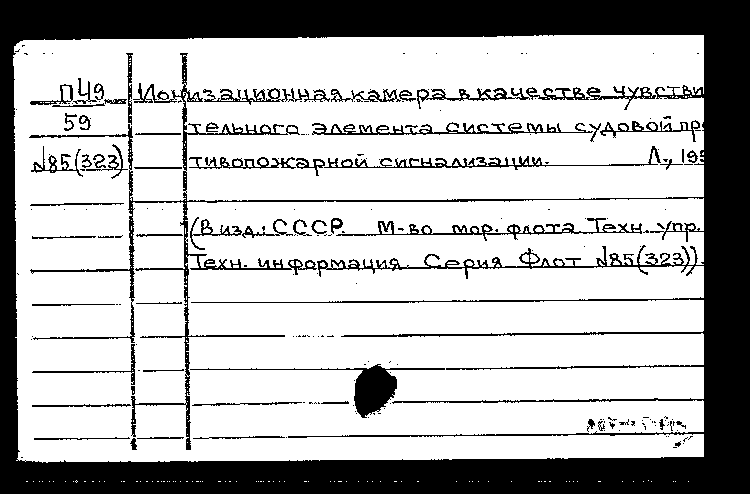 П49 Ионизационная камера в качестве чувстви
59 тельного элемента системы судовой про
№85(323) тивопожарной сигнализации. Л., 195
(В изд.: СССР. М-во мор. флота Техн. упр.
Техн. информация. Серия Флот №85(323)).